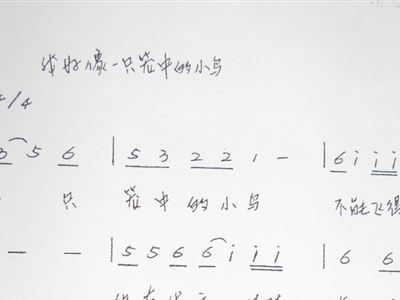 我好像一只笼中的小鸟
/4
3 5 6 | 5 3 2 2 1 - | 6 i i i
只 笼中的小鸟 不能飞得
- - | 5 5 6 6 i i i | 6 6